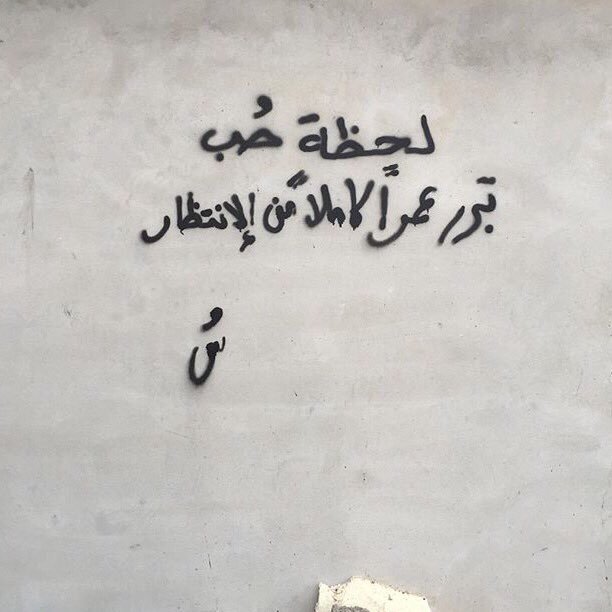 لحظة حُب
تبرر عمراً كاملاً من الإنتظار
سُ